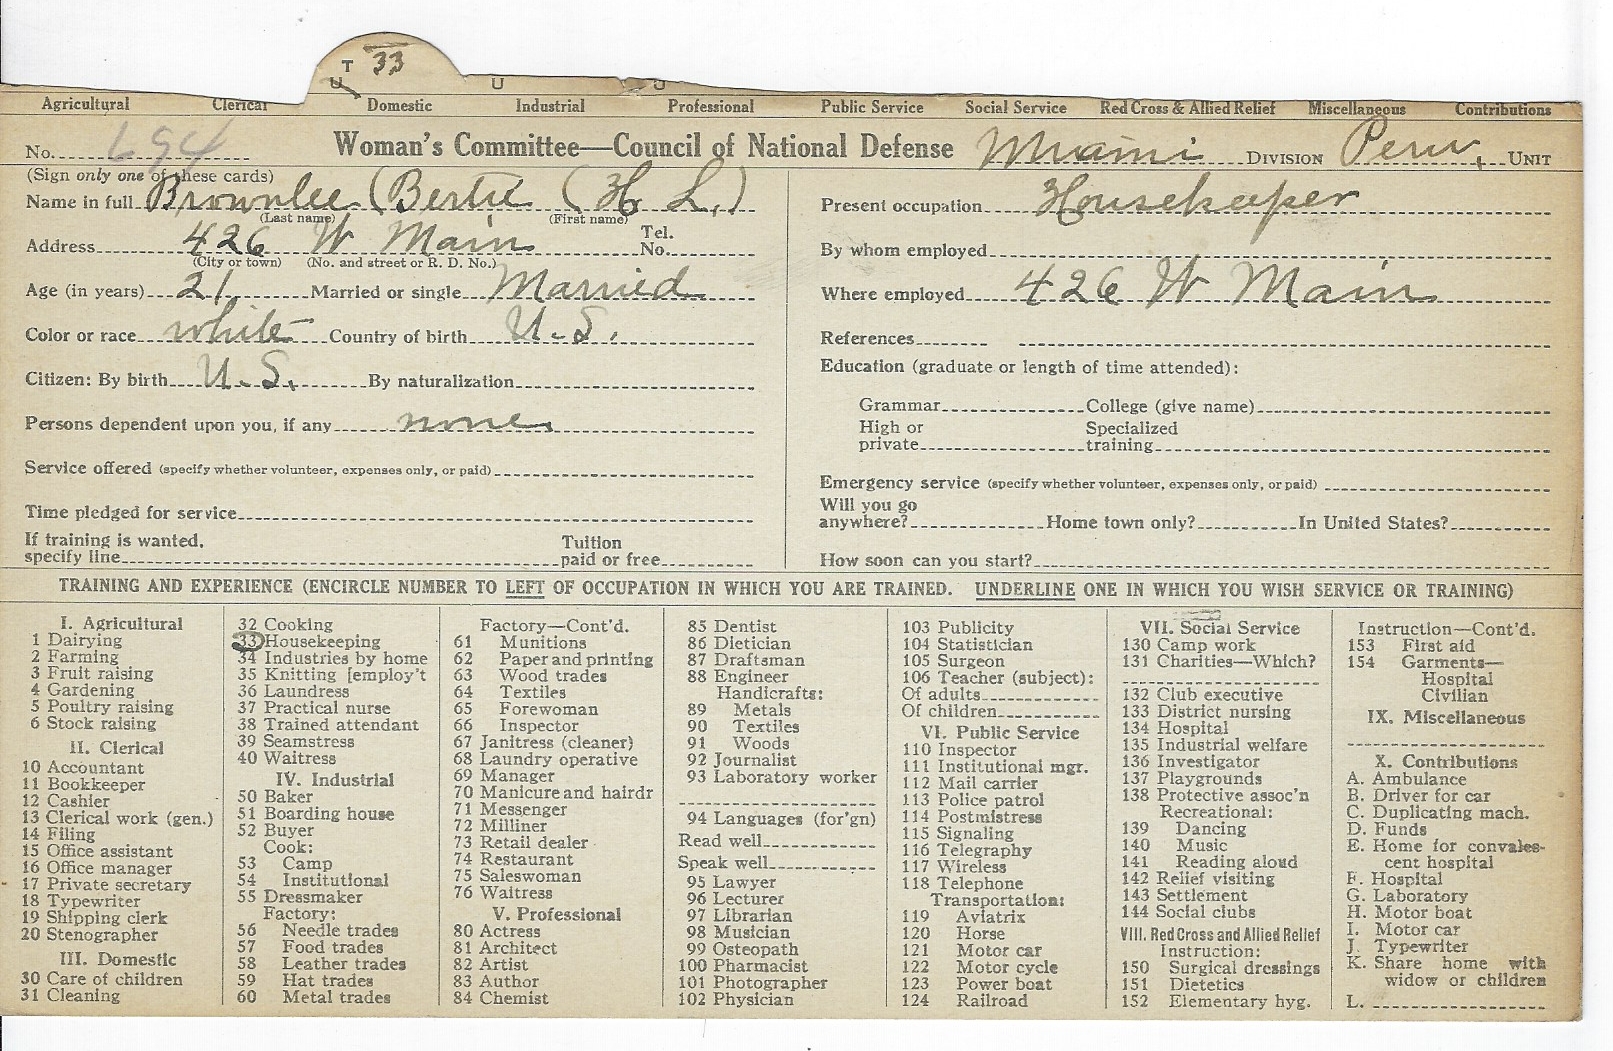 T 33
U U U
Agricultural Clerical Domestic Industrial Professional Public Service Social Service Red Cross & Allied Relief Miscellaneous Contributions
No. 694 Woman's Committee—Council of National Defense Miami DIVISION Peru, UNIT
(Sign only one of these cards)
Name in full Brownlee (Bertie (H L.)
(Last name) (First name)
Address 426 W Main Tel. No.
(City or town) (No. and street or R. D. No.)
Age (in years) 21 Married or single Married
Color or race white Country of birth U.S.
Citizen: By birth U.S. By naturalization
Persons dependent upon you, if any none
Service offered (specify whether volunteer, expenses only, or paid)
Time pledged for service
If training is wanted, specify line Tuition paid or free
Present occupation Housekeeper
By whom employed
Where employed 426 W Main
References
Education (graduate or length of time attended):
Grammar College (give name)
High or private Specialized training
Emergency service (specify whether volunteer, expenses only, or paid)
Will you go anywhere? Home town only? In United States?
How soon can you start?
TRAINING AND EXPERIENCE (ENCIRCLE NUMBER TO LEFT OF OCCUPATION IN WHICH YOU ARE TRAINED. UNDERLINE ONE IN WHICH YOU WISH SERVICE OR TRAINING)
I. Agricultural
1 Dairying
2 Farming
3 Fruit raising
4 Gardening
5 Poultry raising
6 Stock raising
II. Clerical
10 Accountant
11 Bookkeeper
12 Cashier
13 Clerical work (gen.)
14 Filing
15 Office assistant
16 Office manager
17 Private secretary
18 Typewriter
19 Shipping clerk
20 Stenographer
III. Domestic
30 Care of children
31 Cleaning
32 Cooking
33 Housekeeping
34 Industries by home
35 Knitting [employ't
36 Laundress
37 Practical nurse
38 Trained attendant
39 Seamstress
40 Waitress
IV. Industrial
50 Baker
51 Boarding house
52 Buyer
Cook:
53 Camp
54 Institutional
55 Dressmaker
Factory:
56 Needle trades
57 Food trades
58 Leather trades
59 Hat trades
60 Metal trades
Factory—Cont'd.
61 Munitions
62 Paper and printing
63 Wood trades
64 Textiles
65 Forewoman
66 Inspector
67 Janitress (cleaner)
68 Laundry operative
69 Manager
70 Manicure and hairdr
71 Messenger
72 Milliner
73 Retail dealer
74 Restaurant
75 Saleswoman
76 Waitress
V. Professional
80 Actress
81 Architect
82 Artist
83 Author
84 Chemist
85 Dentist
86 Dietician
87 Draftsman
88 Engineer
Handicrafts:
89 Metals
90 Textiles
91 Woods
92 Journalist
93 Laboratory worker
94 Languages (for'gn)
Read well
Speak well
95 Lawyer
96 Lecturer
97 Librarian
98 Musician
99 Osteopath
100 Pharmacist
101 Photographer
102 Physician
103 Publicity
104 Statistician
105 Surgeon
106 Teacher (subject):
Of adults
Of children
VI. Public Service
110 Inspector
111 Institutional mgr.
112 Mail carrier
113 Police patrol
114 Postmistress
115 Signaling
116 Telegraphy
117 Wireless
118 Telephone
Transportation:
119 Aviatrix
120 Horse
121 Motor car
122 Motor cycle
123 Power boat
124 Railroad
VII. Social Service
130 Camp work
131 Charities—Which?
132 Club executive
133 District nursing
134 Hospital
135 Industrial welfare
136 Investigator
137 Playgrounds
138 Protective assoc'n
Recreational:
139 Dancing
140 Music
141 Reading aloud
142 Relief visiting
143 Settlement
144 Social clubs
VIII. Red Cross and Allied Relief
Instruction:
150 Surgical dressings
151 Dietetics
152 Elementary hyg.
Instruction—Cont'd.
153 First aid
154 Garments—
Hospital
Civilian
IX. Miscellaneous
X. Contributions
A. Ambulance
B. Driver for car
C. Duplicating mach.
D. Funds
E. Home for convales-
cent hospital
F. Hospital
G. Laboratory
H. Motor boat
I. Motor car
J. Typewriter
K. Share home with
widow or children
L.